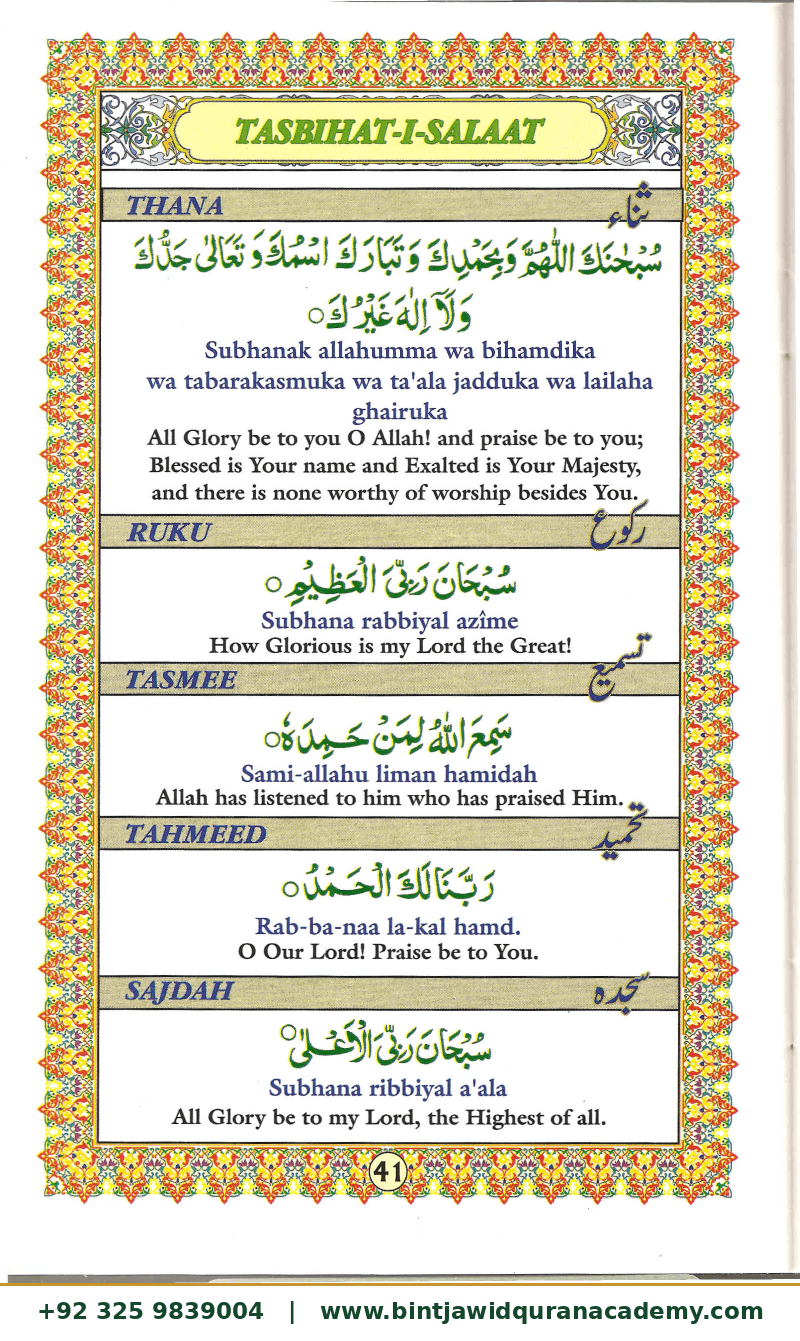 TASBIHAT-I-SALAAT
THANA ثناء
سُبْحٰنَكَ اللّٰهُمَّ وَبِحَمْدِكَ وَ تَبَارَكَ اسْمُكَ وَ تَعَالٰى جَدُّكَ
وَلَآ اِلٰهَ غَيْرُكَ○
Subhanak allahumma wa bihamdika
wa tabarakasmuka wa ta'ala jadduka wa lailaha
ghairuka
All Glory be to you O Allah! and praise be to you;
Blessed is Your name and Exalted is Your Majesty,
and there is none worthy of worship besides You.
RUKU رکوع
سُبْحَانَ رَبِّيَ الْعَظِيْمِ○
Subhana rabbiyal azîme
How Glorious is my Lord the Great!
TASMEE تسمیع
سَمِعَ اللّٰهُ لِمَنْ حَمِدَهٗ○
Sami-allahu liman hamidah
Allah has listened to him who has praised Him.
TAHMEED تحمید
رَبَّنَا لَكَ الْحَمْدُ○
Rab-ba-naa la-kal hamd.
O Our Lord! Praise be to You.
SAJDAH سجدہ
سُبْحَانَ رَبِّيَ الْاَعْلٰى○
Subhana ribbiyal a'ala
All Glory be to my Lord, the Highest of all.
41
+92 325 9839004 | www.bintjawidquranacademy.com